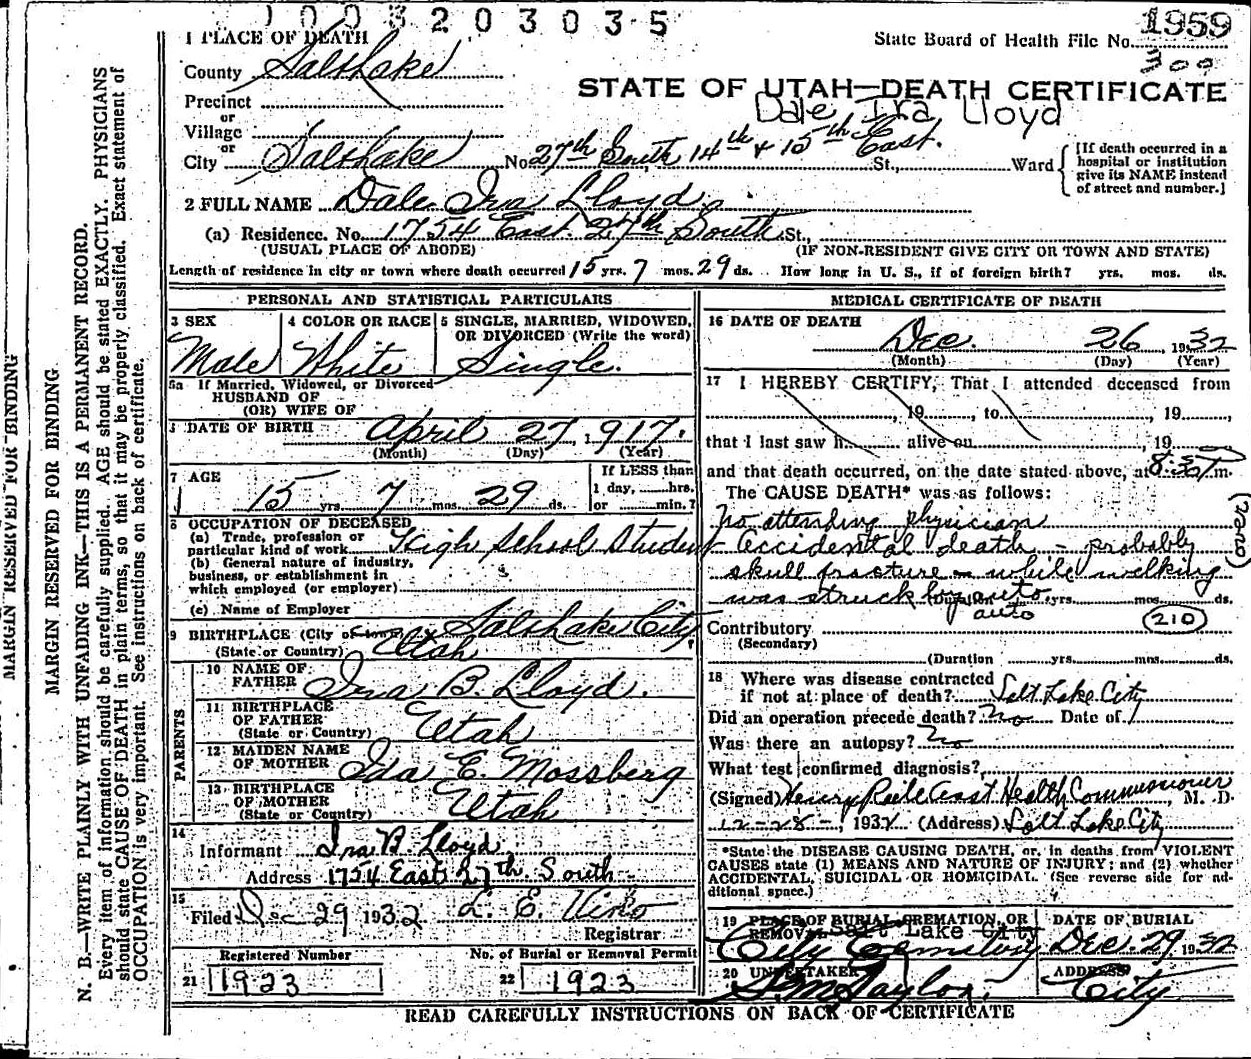 1003203035
1959
State Board of Health File No.
300
1 PLACE OF DEATH
County Salt Lake
STATE OF UTAH—DEATH CERTIFICATE
Dale Ira Lloyd
Precinct
or
Village
or
City Salt Lake No. 27th South 14th + 15th East. St., Ward
[If death occurred in a hospital or institution give its NAME instead of street and number.]
2 FULL NAME Dale Ira Lloyd
(a) Residence. No. 1754 East 27th South St.,
(USUAL PLACE OF ABODE) (IF NON-RESIDENT GIVE CITY OR TOWN AND STATE)
Length of residence in city or town where death occurred 15 yrs. 7 mos. 29 ds. How long in U. S., if of foreign birth? yrs. mos. ds.
PERSONAL AND STATISTICAL PARTICULARS
3 SEX
Male
4 COLOR OR RACE
White
5 SINGLE, MARRIED, WIDOWED, OR DIVORCED (Write the word)
Single.
5a If Married, Widowed, or Divorced
HUSBAND OF
(OR) WIFE OF
DATE OF BIRTH April 27, 1917.
(Month) (Day) (Year)
7 AGE
15 yrs. 7 mos. 29 ds.
If LESS than
1 day, hrs.
or min.?
8 OCCUPATION OF DECEASED
(a) Trade, profession or
particular kind of work High School Student
(b) General nature of industry,
business, or establishment in
which employed (or employer)
(c) Name of Employer
9 BIRTHPLACE (City or town) Salt Lake City
(State or Country) Utah
PARENTS
10 NAME OF
FATHER Ira B. Lloyd.
11 BIRTHPLACE
OF FATHER
(State or Country) Utah
12 MAIDEN NAME
OF MOTHER Ida E. Mossberg
13 BIRTHPLACE
OF MOTHER
(State or Country) Utah
14
Informant Ira B. Lloyd
Address 1754 East 27th South
15
Filed Dec 29 1932 L. E. Viko
Registrar
Registered Number
21 1923
No. of Burial or Removal Permit
22 1923
MEDICAL CERTIFICATE OF DEATH
16 DATE OF DEATH
Dec. 26, 1932
(Month) (Day) (Year)
17 I HEREBY CERTIFY, That I attended deceased from
, 19, to, 19,
that I last saw h alive on, 19
and that death occurred, on the date stated above, at m.
The CAUSE DEATH* was as follows:
No attending physician
Accidental death - probably
skull fracture - while walking
was struck by auto. yrs. mos. ds.
auto
(over)
Contributory
210
(Secondary)
(Duration yrs. mos. ds.
18 Where was disease contracted
if not at place of death? Salt Lake City
Did an operation precede death? No Date of
Was there an autopsy? No
What test confirmed diagnosis?
(Signed) Health Commissioner, M. D.
12-28-, 1932 (Address) Salt Lake City
*State the DISEASE CAUSING DEATH, or, in deaths from VIOLENT
CAUSES state (1) MEANS AND NATURE OF INJURY; and (2) whether
ACCIDENTAL, SUICIDAL OR HOMICIDAL. (See reverse side for additional space.)
19 PLACE OF BURIAL, CREMATION, OR
REMOVAL Salt Lake City
City Cemetery
DATE OF BURIAL
Dec. 29, 1932
20 UNDERTAKER
S. M. Taylor.
ADDRESS
City
READ CAREFULLY INSTRUCTIONS ON BACK OF CERTIFICATE
MARGIN RESERVED FOR BINDING
MARGIN RESERVED FOR BINDING.
N. B.—WRITE PLAINLY WITH UNFADING INK—THIS IS A PERMANENT RECORD.
Every item of information should be carefully supplied. AGE should be stated EXACTLY. PHYSICIANS
should state CAUSE OF DEATH in plain terms, so that it may be properly classified. Exact statement of
OCCUPATION is very important. See instructions on back of certificate.